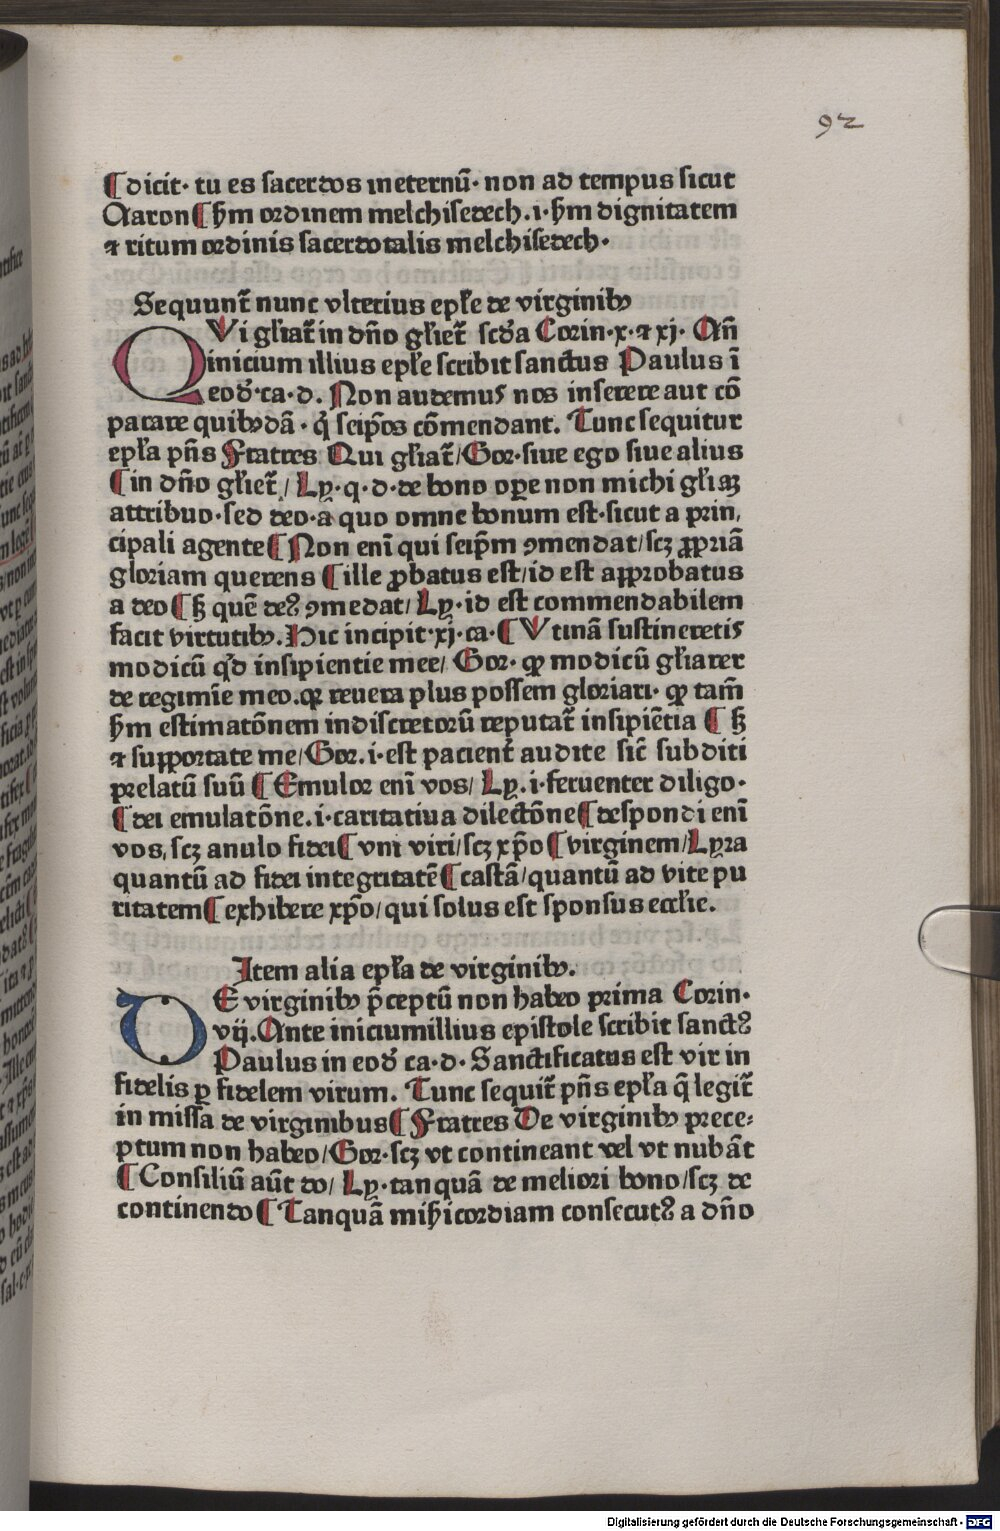 92
¶dicit· tu es sacerdos ineternū· non ad tempus sicut
Aaron¶ẜm ordinem melchisedech.i·ẜm dignitatem
⁊ ritum ordinis sacerdotalis melchisedech·
Sequunt̃ nunc vlterius epłe de virginibꝫ
QVi głiat̃ in dño głiet̃ scd̃a Corin·x·⁊ xj· Añ
inicium illius epłe scribit sanctus Paulus ī
eod̃·ca·d. Non audemus nos inserere aut cō
parare quibꝫdā· q̇ seip̃os cōmendant. Tunc sequitur
epła pñs Fratres Qui głiat̃/Gor·siue ego siue alius
¶in dño głiet̃/Ly·q·d·de bono oꝑe non michi głiaꝫ
attribuo·sed deo·a quo omne bonum est·sicut a prin,
cipali agente¶Non enī qui seip̃m ꝯmendat/scꝫ ꝓpriā
gloriam querens¶ille ꝓbatus est/id est approbatus
a deo¶ꝫ quē deꝰ ꝯmedat/Ly·id est commendabilem
facit virtutibꝫ.Hic incipit·xj·ca·¶Vtinā sustineretis
modicū qd̃ insipientie mee/Gor· qꝫ modicū głiarer
de regimīe meo.qꝫ reuera plus possem gloriari· qꝫ tam̃
ẜm estimatōnem indiscretorū reputat̃ insipiētia¶ꝫ
⁊ supportate me/Gor.i·est pacient̃ audite sic̃ subditi
prelatū suū¶Emulor enī vos/Ly.i·feruenter diligo·
¶dei emulatōne.i·caritatiua dilectōne¶despondi enī
vos,scꝫ anulo fidei¶vni viri/scꝫ xp̃o¶virginem/Lyra
quantū ad fidei integritatē¶castā/quantū ad vite pu
ritatem¶exhibere xp̃o/qui solus est sponsus eccłie.
Item alia epła de virginibꝫ.
DE virginibꝫ p̄ceptū non habeo prima Corin·
vij.Ante iniciumillius epistole scribit sanctꝰ
Paulus in eod̃ ca·d·Sanctificatus est vir in
fidelis ꝑ fidelem virum. Tunc sequit̃ pñs epła q̄ legit̃
in missa de virginibus¶Fratres De virginibꝫ prece⸗
ptum non habeo/Gor·scꝫ vt contineant vel vt nubāt
¶Consiliū aūt do/Ly·tanquā de meliori bono/scꝫ de
continendo¶Tanquā miẜicordiam consecutꝰ a dño
Digitalisierung gefördert durch die Deutsche Forschungsgemeinschaft - DFG